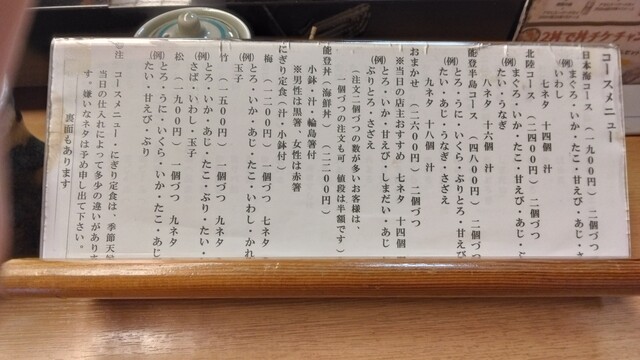 コースメニュー
日本海コース（一九〇〇円）二個づつ
七ネタ 十四個 汁
(例)まぐろ・いか・たこ・甘えび・あじ・
いわし
北陸コース（二四〇〇円）二個づつ
七ネタ 十四個 汁
(例)まぐろ・いか・たこ・甘えび・あじ・ぶ
たい・うなぎ
能登半島コース（四八〇〇円）二個づつ
八ネタ 十六個 汁
(例)とろ・うに・いくら・ぶりとろ・甘えび
たい・あじ・うなぎ・さざえ
おまかせ（二六〇〇円）二個づつ
九ネタ 十八個 汁
※当日の店主おすすめ 七ネタ 十四個
(例)とろ・いか・甘えび・しまだい・あじ
ぶりとろ・さざえ
（注文二個づつの数が多いお客様は、
一個づつの注文も可 値段は半額です）
能登丼（海鮮丼）（二二〇〇円）
小鉢・汁・輪島箸付
※男性は黒箸、女性は赤箸
にぎり定食（汁・小鉢付）
梅（一二〇〇円）一個づつ 七ネタ
(例)とろ・いか・あじ・たこ・いわし・かれ
玉子
竹（一五〇〇円）一個づつ 九ネタ
(例)とろ・いか・あじ・たこ・ぶり・たい・
さば・いわし・玉子
松（一九〇〇円）一個づつ 九ネタ
(例)とろ・うに・いくら・いか・たこ・あじ
たい・甘えび・ぶり
※注 コースメニュー・にぎり定食は、季節天候
当日の仕入によって多少の違いがありま
す。嫌いなネタは予め申し出て下さい。
裏面もあります
2丼で丼チケチャン